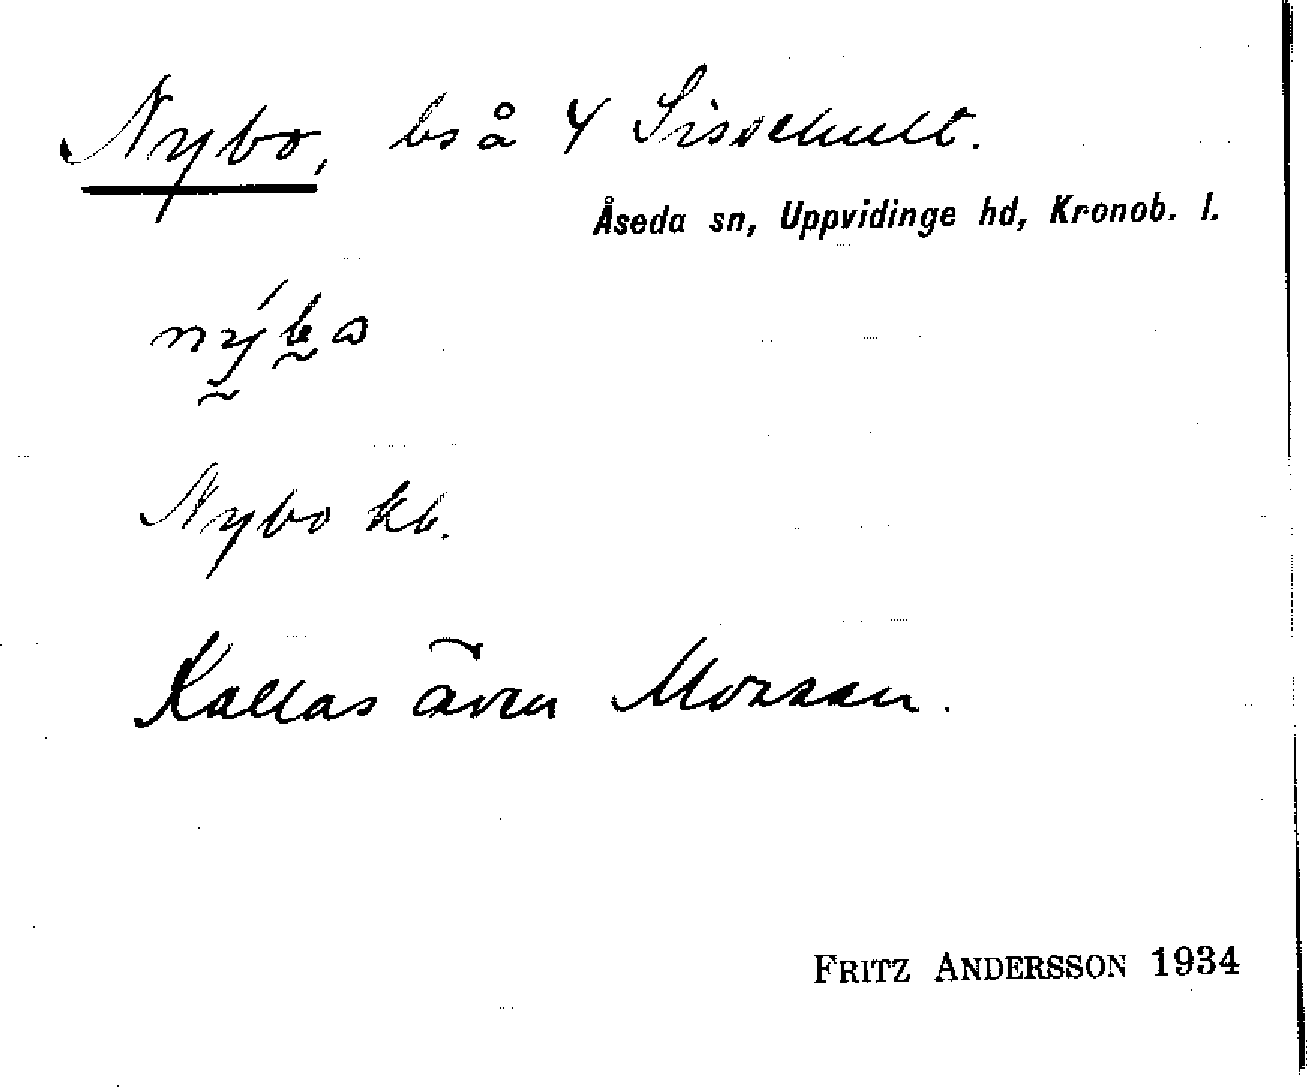 Nybo, bs å 4 Sissehult.
Åseda sn, Uppvidinge hd, Kronob. l.
Nybo kb.
Kallas även Mossan.
FRITZ ANDERSSON 1934